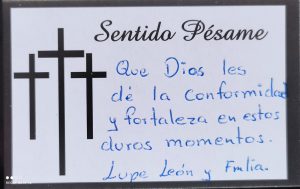 Sentido Pésame
Que Dios les
dé la conformidad
y fortaleza en estos
duros momentos.
Lupe León y Fmlia.